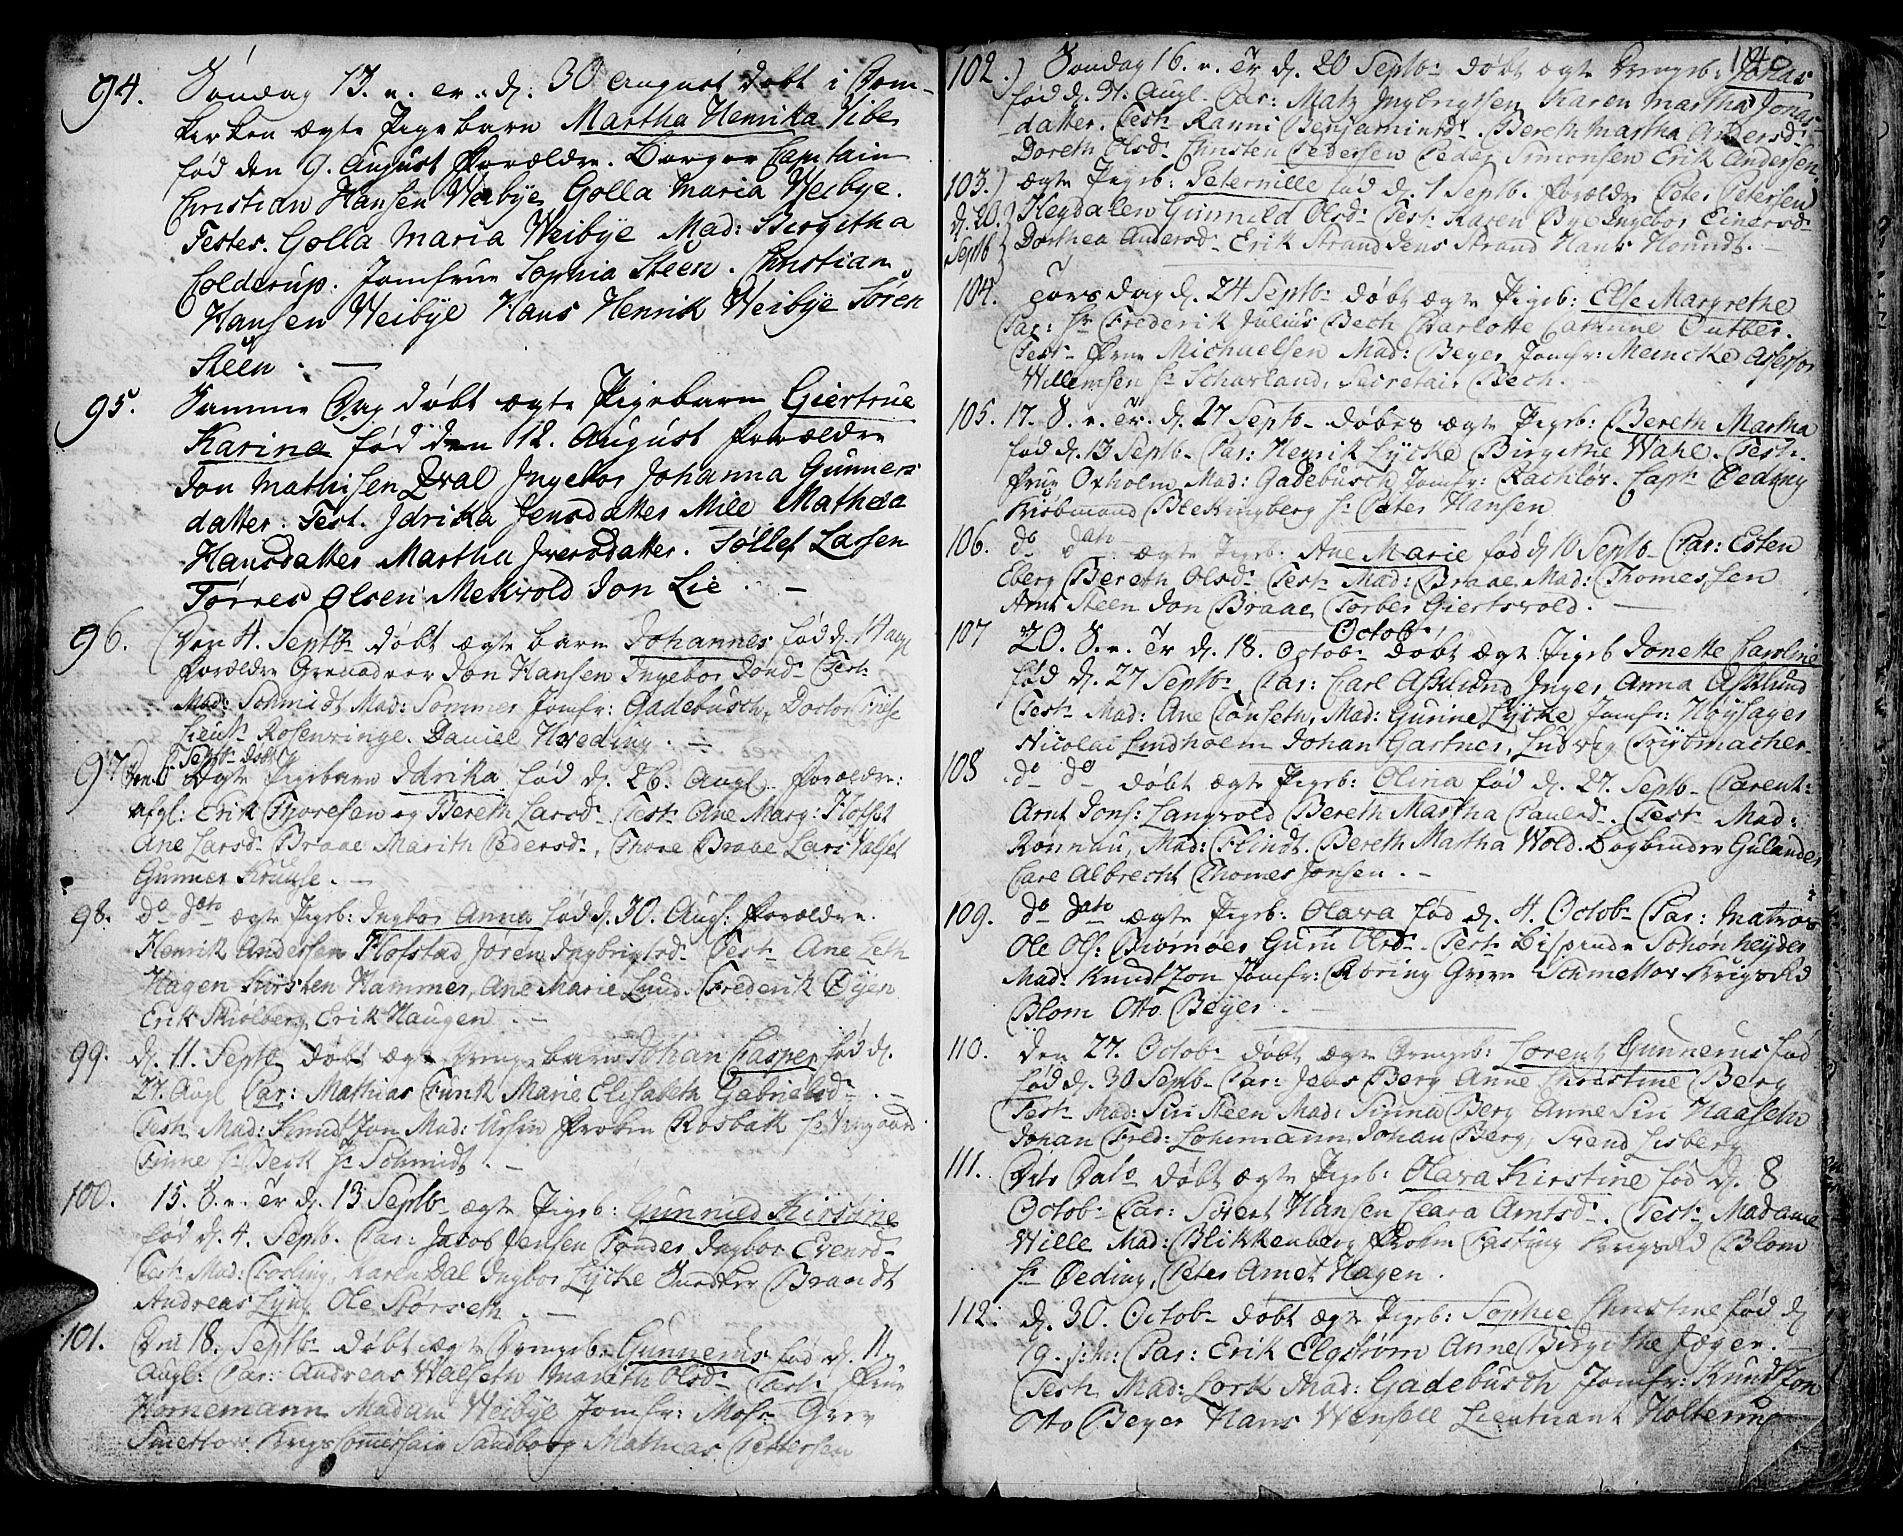 94. Søndag 13. n. er. d. 30 August døbt i Dom-
kerken ægte Pigebarn Martha Henrika Vibe
fød den 9. August Forældre. Borger Captain
Christian Hansen Weibye Golla Maria Weibye.
Testes. Golla Maria Weibye Mad: Birgitha
Colderup. Jomfrue Sophia Steen. Christian
Hansen Weibye Hans Henrik Weibye Søren
Steen. —
95. Samme Dag døbt ægte Pigebarn Giertrue
Karina fød den 12. August Forældre
Jon Mathisen Qval Ingebor Johanna Gunners
datter. Test. Idrika Jensdatter Mile Mathea
Hansdatter Martha Iversdatter. Tøllef Larsen
Tørres Olsen Mekvold Jon Lie. —
96. Den 4. Septbr døbt ægte barn Johannes fød d. 14 Aug
Forældre Grenadeer Jon Hansen Ingebor Jonsd Test
Mad: Schmidt Mad: Sommer Jomfr: Gadebusch, Doctor
Lieut Rosenvinge. Daniel Hveding. —
97. Septbr døbt
ægte Pigebarn Idrika fød d. 26. Augl. Forældre:
afgl: Erik Thoresen og Bereth Larsd. Test Ane Marg: Hofset
Ane Larsd Braae Marith Pedersd, Thore Braae Lars Valset
Gunner Kruuse. —
98. do dato ægte Pigeb: Ingbor Anna fød d. 30. Aug: Forældre.
Henrik Andersen Hofstad Jøren Ingbrigtsd Test Ane Leth
Hagen Kirsten Hammer, Ane Marie Lund. Frederik Øyen
Erik Skiolberg, Erik Haugen. —
99. d. 11. Septb døbt ægte Drengebarn Johan Casper fød d.
27. Augl Par: Mathias Funk Marie Elisabeth Gabrielsd. —
Test Mad: Knudtzon Mad: Ursin Frøken Rosbak
Finne Hr Berk Hr Schmidt. —
100. 15. S. n. Tr d. 13 Septb ægte Pigeb: Gunnild Kirstine
fød d. 4. Septb. Par: Jacob Jensen Tønder Ingbor Evensd
Test Mad: Cosling, Karen Dal Ingbor Lycke Braandt
Andreas Lyng Ole Størseth. —
101. Den 18. Septb døbt ægte Drengeb: Gunnerus fød d. 11.
Augl: Par: Andreas Walseth Marith Olsd Test Frue
Hornemann Madam Weibye Jomfr: Grev
Smettov Krigscommersair Sandborg Mathias Pettersen
140
102.) Søndag 16. n. Tr d. 20 Septb døbt ægte Drengeb: Jonas
fød d. 31. Augl. Par: Matz Ingbrigtsen Karen Martha Jonas-
datter. Test Ranni Benjaminsd. Bereth Martha Andersd
Doreth Olsd Christen Pedersen Peder Simonsen Erik Andersen.
103.)
d. 20.
Septb ægte Pigeb: Peternille fød d. 1 Septb. Forældre Peter Petersen
Hegdalen Gunnild Olsd Test Karen Bye Ingebor Einersd
Dorthea Andersd Erik Strand Jens Strand Hans Houndt. —
104. Torsdag d. 24 Septb døbt ægte Pigeb: Else Margrethe
Par: Hr Frederik Julius Bech Charlotte Catrine
Test Frue Michaelsen Mad: Beyer Jomfr: Meincke Assessor
Willemsen Hr Scharland, Secretair Bech. —
105. 17. S. n. Tr. d. 27 Septb døbes ægte Pigeb: Bereth Martha
fød d. 13 Septb Par: Henrik Lycke Birgithe Wahl. Test
Frue Oxholm Mad: Gadebusch Jomfr: Rachløv. Capt Øeding
Kiøbmand Blekingberg Hr Peter Hansen
106. do dato ægte Pigeb: Ane Marie fød d 10 Septb Par: Esten
Eberg Bereth Olsd Test Mad: Braae Mad: Thomessen
Arnt Steen Jon Braae Torber Giertsvold. —
107 20. S. n. Tr d. 18. Octob døbt ægte Pigeb Jonette Caroline
Octob
fød d. 27 Septb Par: Carl Asklund Inger Anna Asklund
Test Mad: Ane Tønseth, Mad: Gurine Lycke Jomfr: Høysager
Nicolai Lindholm Johan Gartner, Ludvig Tiybmacher
108 do do døbt ægte Pigeb: Olina fød d. 27. Septb Parent:
Arnt Jons: Langvold Bereth Martha Paulsd. Test Mad:
Rønnau, Mad: Flindt. Bereth Martha Wold. Bogbinder Gulander
Carl Albrecht Thomes Jonsen. —
109. do dato ægte Pigeb: Olava fød d. 4. Octob Par: Matros
Ole Ols: Biørnøer Guru Olsd. Test Bispinde Schønheyder
Mad: Knudtzon Jomfr: Røring Greve Schmettov Krigsrd
Blom Otto Beyer. —
110. den 27. Octob døbt ægte Drengeb: Lorentz Gunnerus fød
fød d. 30 Septb Par: Jens Berg Anne Christine Berg
Test Mad: Siri Steen Mad: Sirina Berg Anne Siri Haaseth
Johan Fred: Lohrmann Johan Berg, Svend Lisberg
111. Dito Dato døbt ægte Pigeb: Olava Kirstine fød d. 8
Octob Par: Sivert Hansen Clara Arntsd. Test Madame
Wille Mad: Blikkenberg Frøken Casting Krigsrd Blom
Hr Øeding, Peter Arnet Hagen.
112. d. 30. Octob døbt ægte Pigeb: Sophie Christine fød d
19. Par: Erik Elgstrøm Anne Birgithe Jæger. —
Test Mad: Lork Mad: Gadebusch Jomfr: Knudtzon
Otto Beyer Hans Wensell Lieutnant Holterup